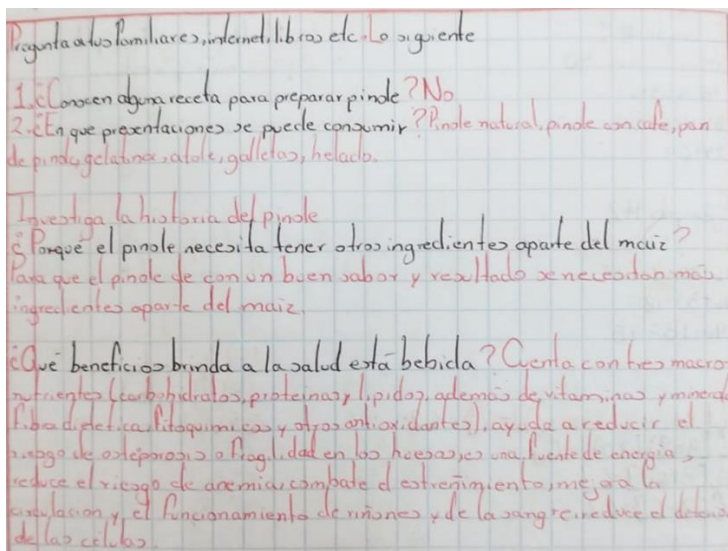 Pregunta a tus familiares, internet, libros etc. Lo siguiente
1. ¿Conocen alguna receta para preparar pinole? No
2. ¿En que presentaciones se puede consumir? Pinole natural, pinole con cafe, pan
de pinole, gelatinas, atole, galletas, helado.
Investiga la historia del pinole
¿Porqué el pinole necesita tener otros ingredientes aparte del maiz?
Para que el pinole de con un buen sabor y resultado se necesitan más
ingredientes aparte del maiz.
¿Qué beneficios brinda a la salud está bebida? Cuenta con tres macro
nutrientes (carbohidratos, proteinas y lipidos, además de vitaminas y mineral
fibra dietetica, fitoquimicos y otros antioxidantes), ayuda a reducir el
riesgo de osteoporosis o fragilidad en los huesos, es una fuente de energía,
reduce el riesgo de anemia, combate el estreñimiento, mejora la
circulacion y el funcionamiento de riñones y de la sangre, reduce el deterio
de las celulas.